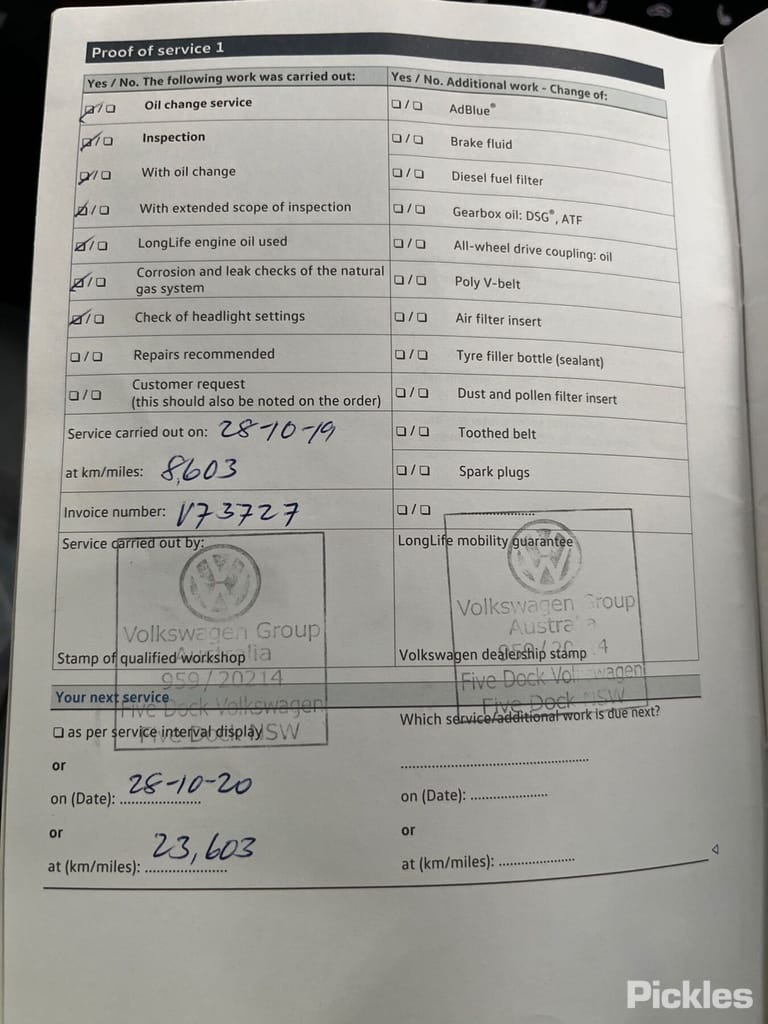 Proof of service 1
Yes / No. The following work was carried out:
☑/☐ Oil change service
☑/☐ Inspection
☑/☐ With oil change
☑/☐ With extended scope of inspection
☑/☐ LongLife engine oil used
☑/☐ Corrosion and leak checks of the natural
gas system
☑/☐ Check of headlight settings
☐/☐ Repairs recommended
☐/☐ Customer request
(this should also be noted on the order)
Service carried out on: 28-10-19
at km/miles: 8,603
Invoice number: V73727
Service carried out by:
Volkswagen Group
Australia
959/20214
Five Dock Volkswagen
Five Dock NSW
Stamp of qualified workshop
Yes / No. Additional work - Change of:
☐/☐ AdBlue®
☐/☐ Brake fluid
☐/☐ Diesel fuel filter
☐/☐ Gearbox oil: DSG®, ATF
☐/☐ All-wheel drive coupling: oil
☐/☐ Poly V-belt
☐/☐ Air filter insert
☐/☐ Tyre filler bottle (sealant)
☐/☐ Dust and pollen filter insert
☐/☐ Toothed belt
☐/☐ Spark plugs
☐/☐ ....................
LongLife mobility guarantee
Volkswagen Group
Australia
959/20214
Five Dock Volkswagen
Five Dock NSW
Volkswagen dealership stamp
Your next service
☐ as per service interval display
or
on (Date): 28-10-20
or
at (km/miles): 23,603
Which service/additional work is due next?
....................
on (Date): ....................
or
at (km/miles): ....................
Pickles